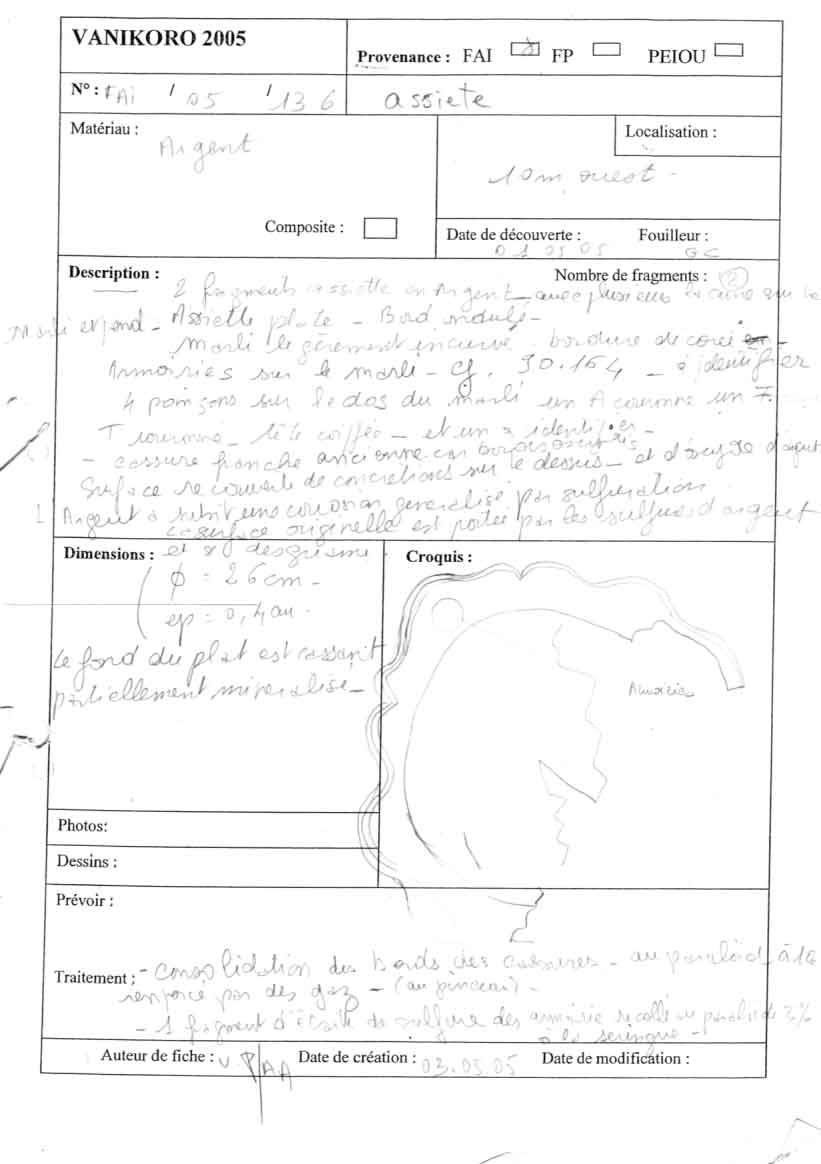 VANIKORO 2005
Provenance : FAI FP PEIOU
N° : FAi / 05 / 136 assiete
Matériau : Localisation :
Argent
10m ouest -
Composite :
Date de découverte : Fouilleur :
01 05 05 GC
Description : Nombre de fragments : 2
2 fragments assiette en Argent avec plusieurs lacune sur le
Marli et fond - Assiette plate - Bord ondulé -
Marli legèrement incurvé . bordure de
Armoiries sur le marli - cf. 30.164 - à identifier
4 poinçons sur le dos du marli un A couronne un
T couronné - tête coiffée - et un à identifier -
- cassure franche ancienne car bords
Surface recouverte de concretions sur le dessus - et d'oxyde d'argent
Argent a subit une corrosion generalisé par sulfuration
la surface originelle est portée par les sulfures d'argent
Dimensions : Croquis :
ϕ = 26 cm -
ep = 0,4 cm .
Le fond du plat est cassant
partiellement mineralisé -
Armoiries
Photos:
Dessins :
Prévoir :
Traitement : - consolidation des bords des cassures - au paraloïd à
renforcé par des gaz - (au pinceau) -
- 1 fragment d' de sulfure des armoirie recollé au paraloïde 3%
à la seringue -
Auteur de fiche : V.P/AA Date de création : 03.05.05 Date de modification :